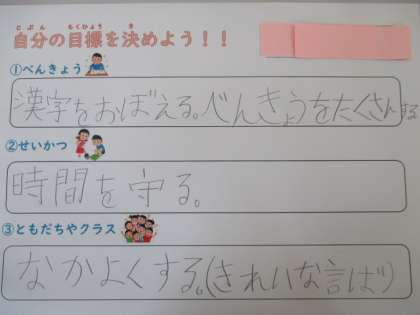 じぶん もくひょう き
自分の目標を決めよう！！
①べんきょう
漢字をおぼえる。べんきょうをたくさんする
②せいかつ
時間を守る。
③ともだちやクラス
なかよくする。(きれいな言ば)